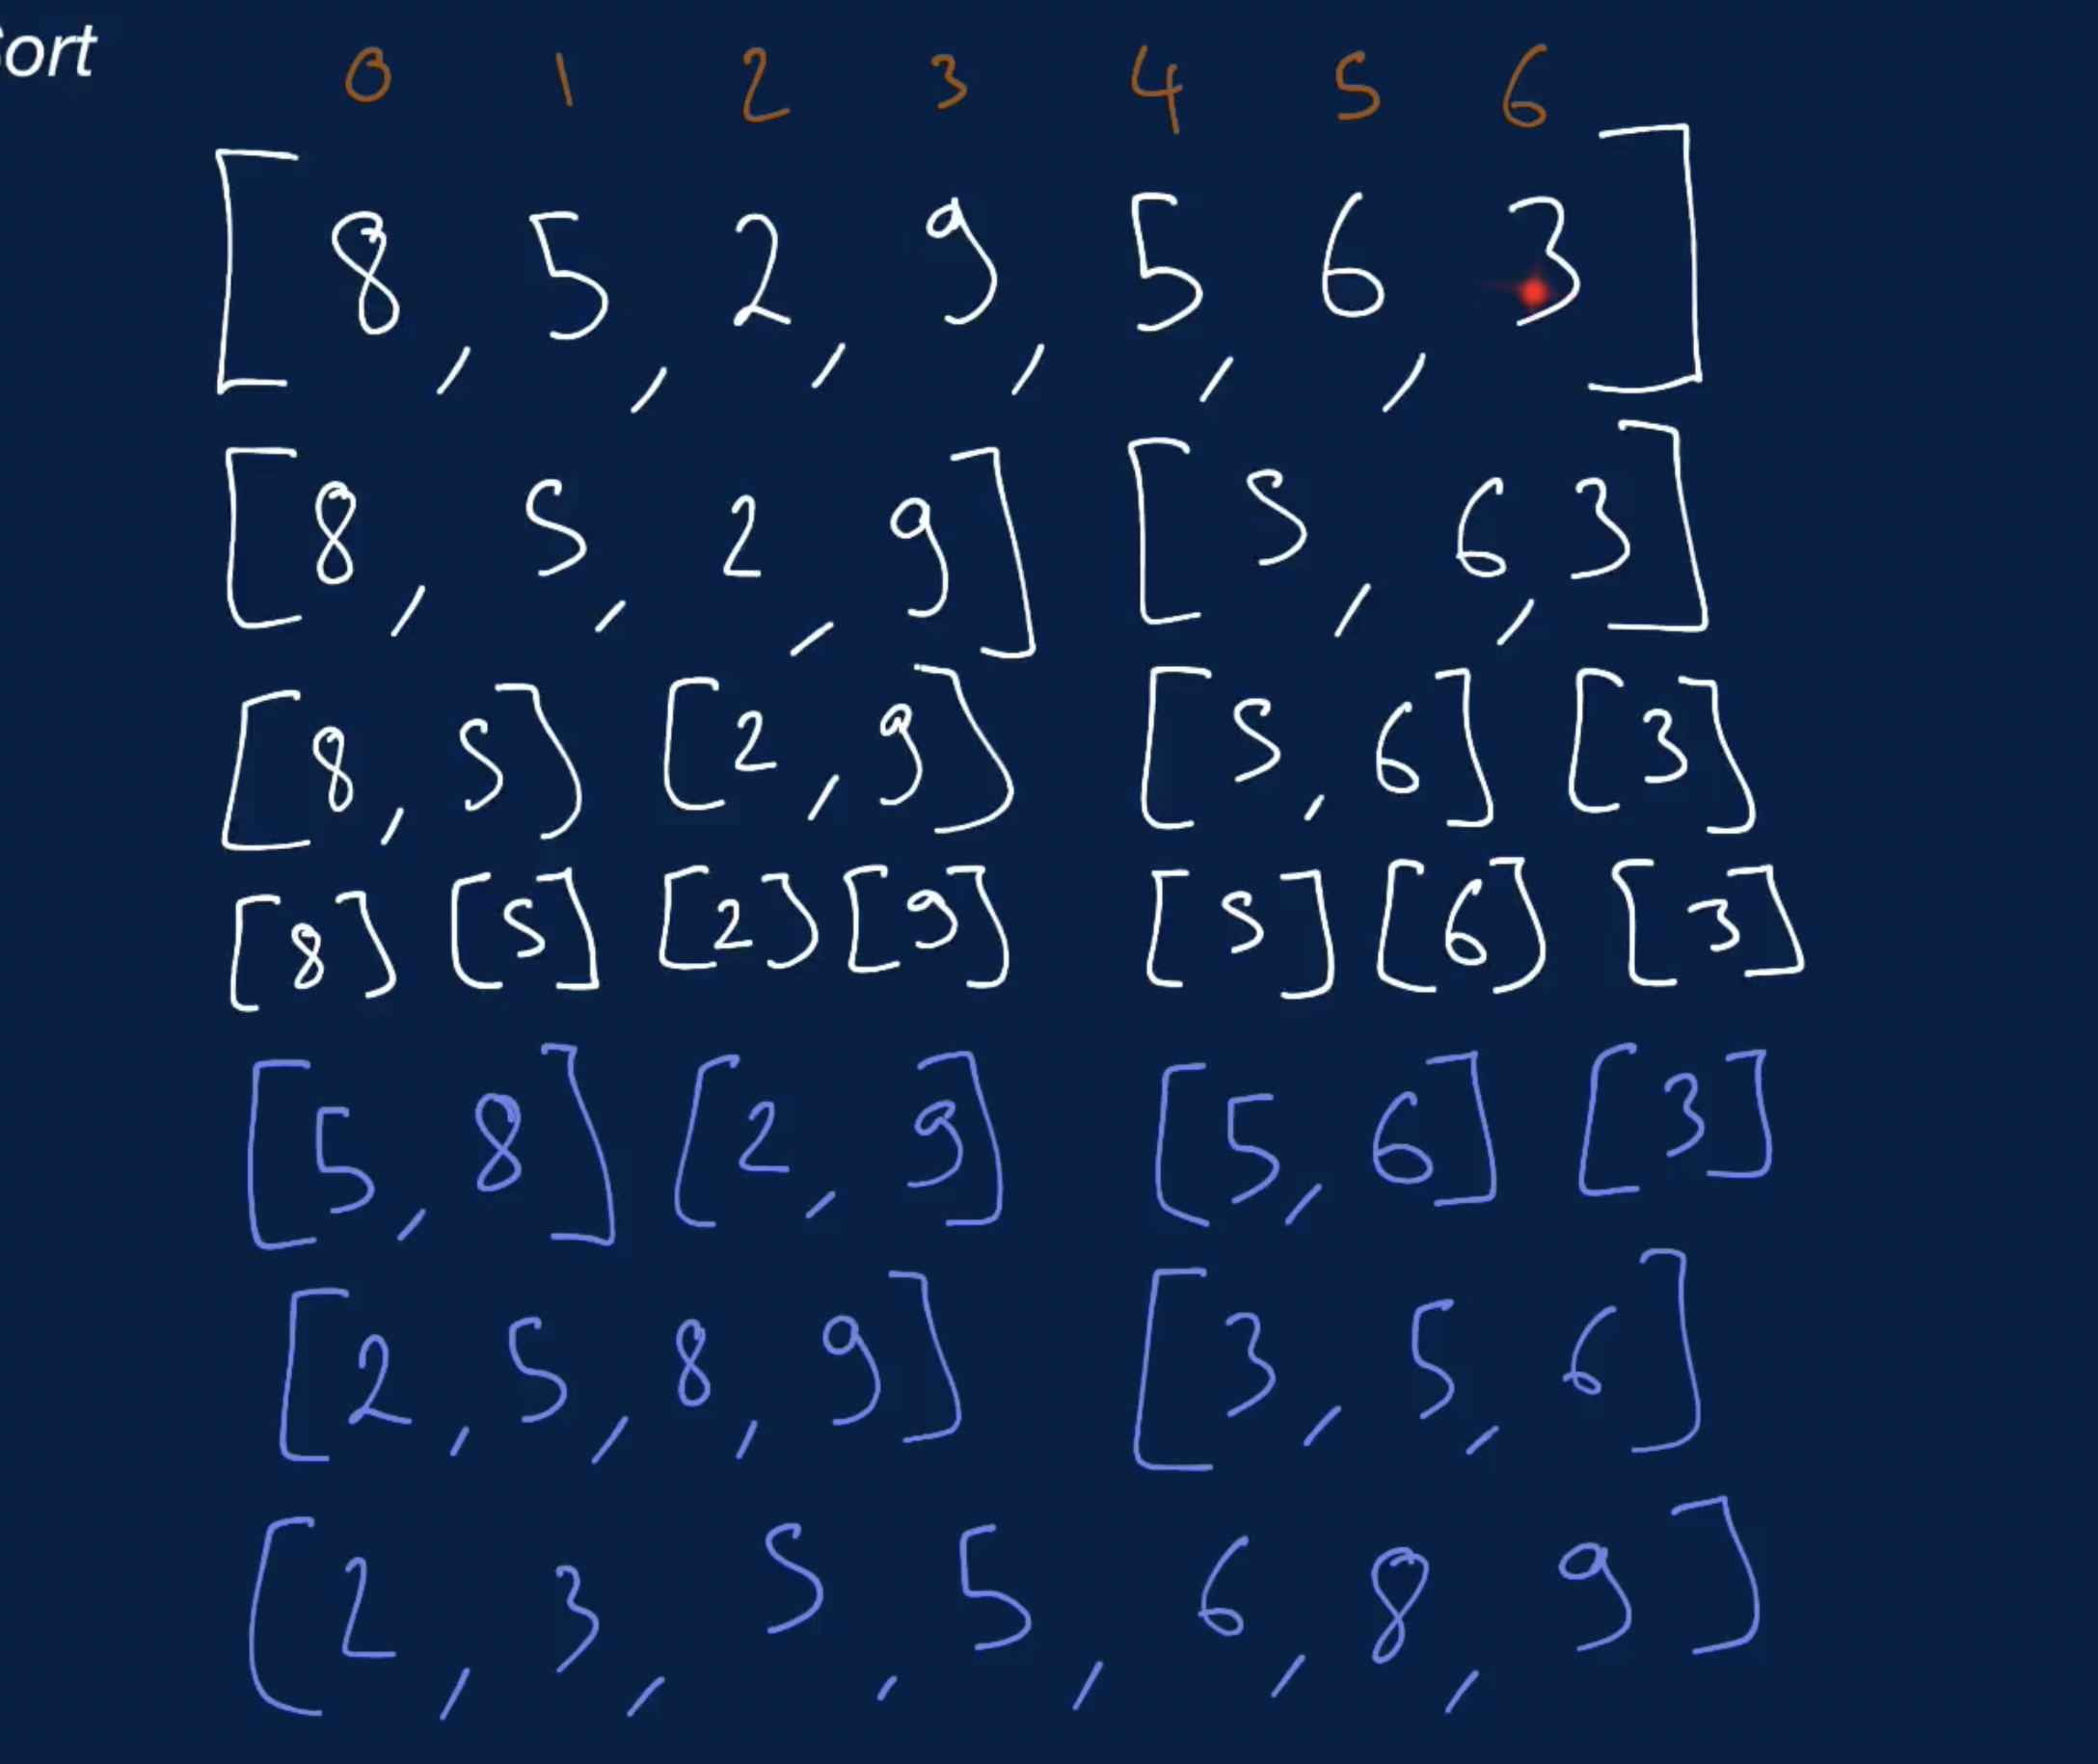 ort
0 1 2 3 4 5 6
[8, 5, 2, 9, 5, 6, 3]
[8, 5, 2, 9] [5, 6, 3]
[8, 5] [2, 9] [5, 6] [3]
[8] [5] [2] [9] [5] [6] [3]
[5, 8] [2, 9] [5, 6] [3]
[2, 5, 8, 9] [3, 5, 6]
[2, 3, 5, 5, 6, 8, 9]